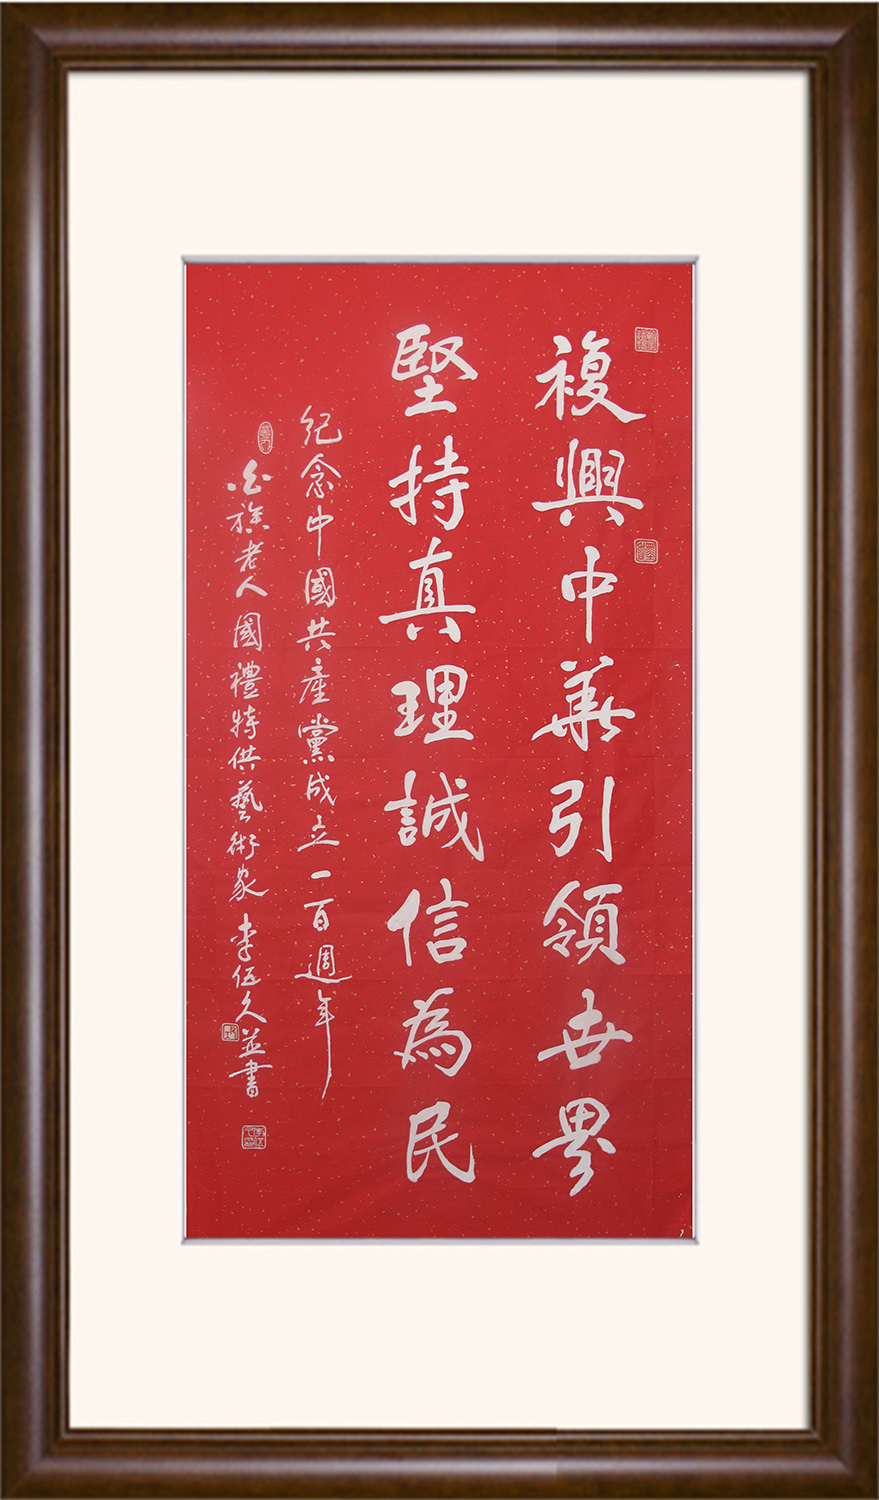 複興中華引領世界
堅持真理誠信為民
紀念中國共產黨成立一百週年
白族老人國禮特供藝術家李伍久並書